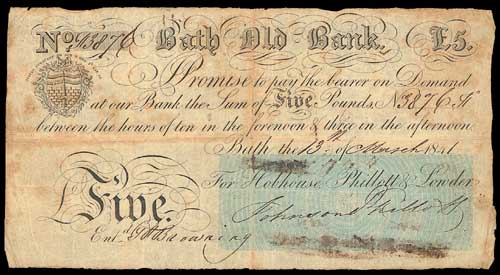 No. 3876 Bath Old Bank. £5.
Promise to pay the bearer on Demand
at our Bank the Sum of Five Pounds. No 3876
between the hours of ten in the forenoon & three in the afternoon
Bath the 13th of March 1841
For Hobhouse, Phillott & Lowder
Five.
Johnson Phillott
Entd. Browning